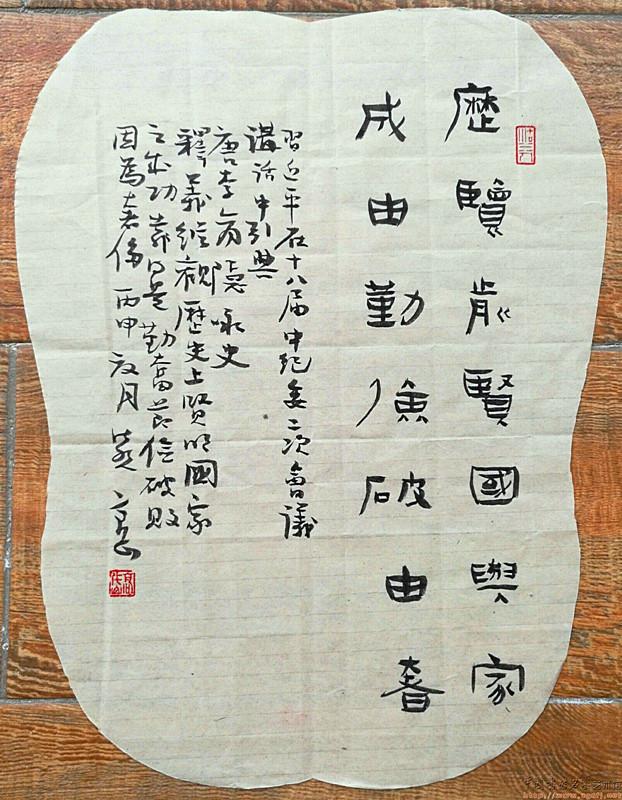 歷覽前賢國與家
成由勤儉破由奢
習近平在十八届中纪委二次會議
講話中引典
唐李商隱咏史
釋義縱觀歷史上賢明國家
之成功是勤奮節儉破敗
因為奢侈 丙申夏月